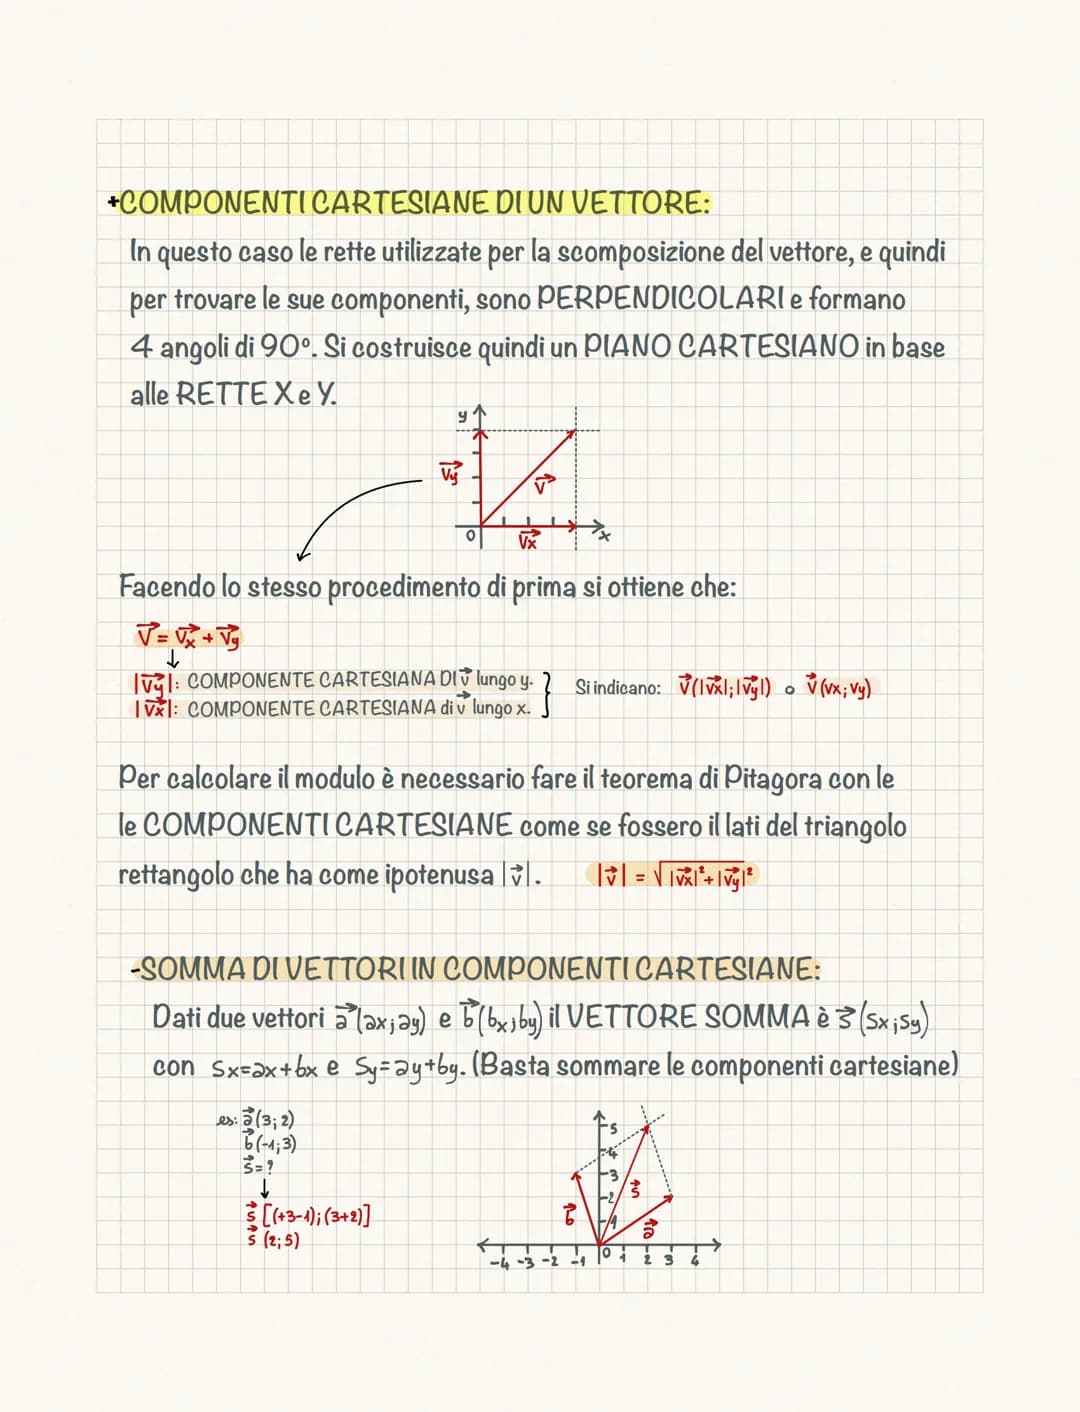 +COMPONENTI CARTESIANE DI UN VETTORE:
In questo caso le rette utilizzate per la scomposizione del vettore, e quindi
per trovare le sue componenti, sono PERPENDICOLARI e formano
4 angoli di 90°. Si costruisce quindi un PIANO CARTESIANO in base
alle RETTE X e Y.
y
V⃗y
v⃗
0
V⃗x
x
Facendo lo stesso procedimento di prima si ottiene che:
V⃗ = V⃗x + V⃗y
↓
|V⃗y|: COMPONENTE CARTESIANA DI v⃗ lungo y.
|V⃗x|: COMPONENTE CARTESIANA di v⃗ lungo x.
} Si indicano: v⃗(|v⃗x|;|v⃗y|) o v⃗(vx; vy)
Per calcolare il modulo è necessario fare il teorema di Pitagora con le
le COMPONENTI CARTESIANE come se fossero il lati del triangolo
rettangolo che ha come ipotenusa |v⃗|. |v⃗| = √|v⃗x|²+|v⃗y|²
-SOMMA DI VETTORI IN COMPONENTI CARTESIANE:
Dati due vettori a⃗(ax;ay) e b⃗(bx;by) il VETTORE SOMMA è s⃗(sx;sy)
con sx=ax+bx e sy=ay+by. (Basta sommare le componenti cartesiane)
es: a⃗(3; 2)
b⃗(-1;3)
s⃗=?
↓
s⃗ [(+3-1);(3+2)]
s⃗ (2; 5)
5
4
3
2
1
s⃗
b⃗
a⃗
-4 -3 -2 -1 0 1 2 3 4